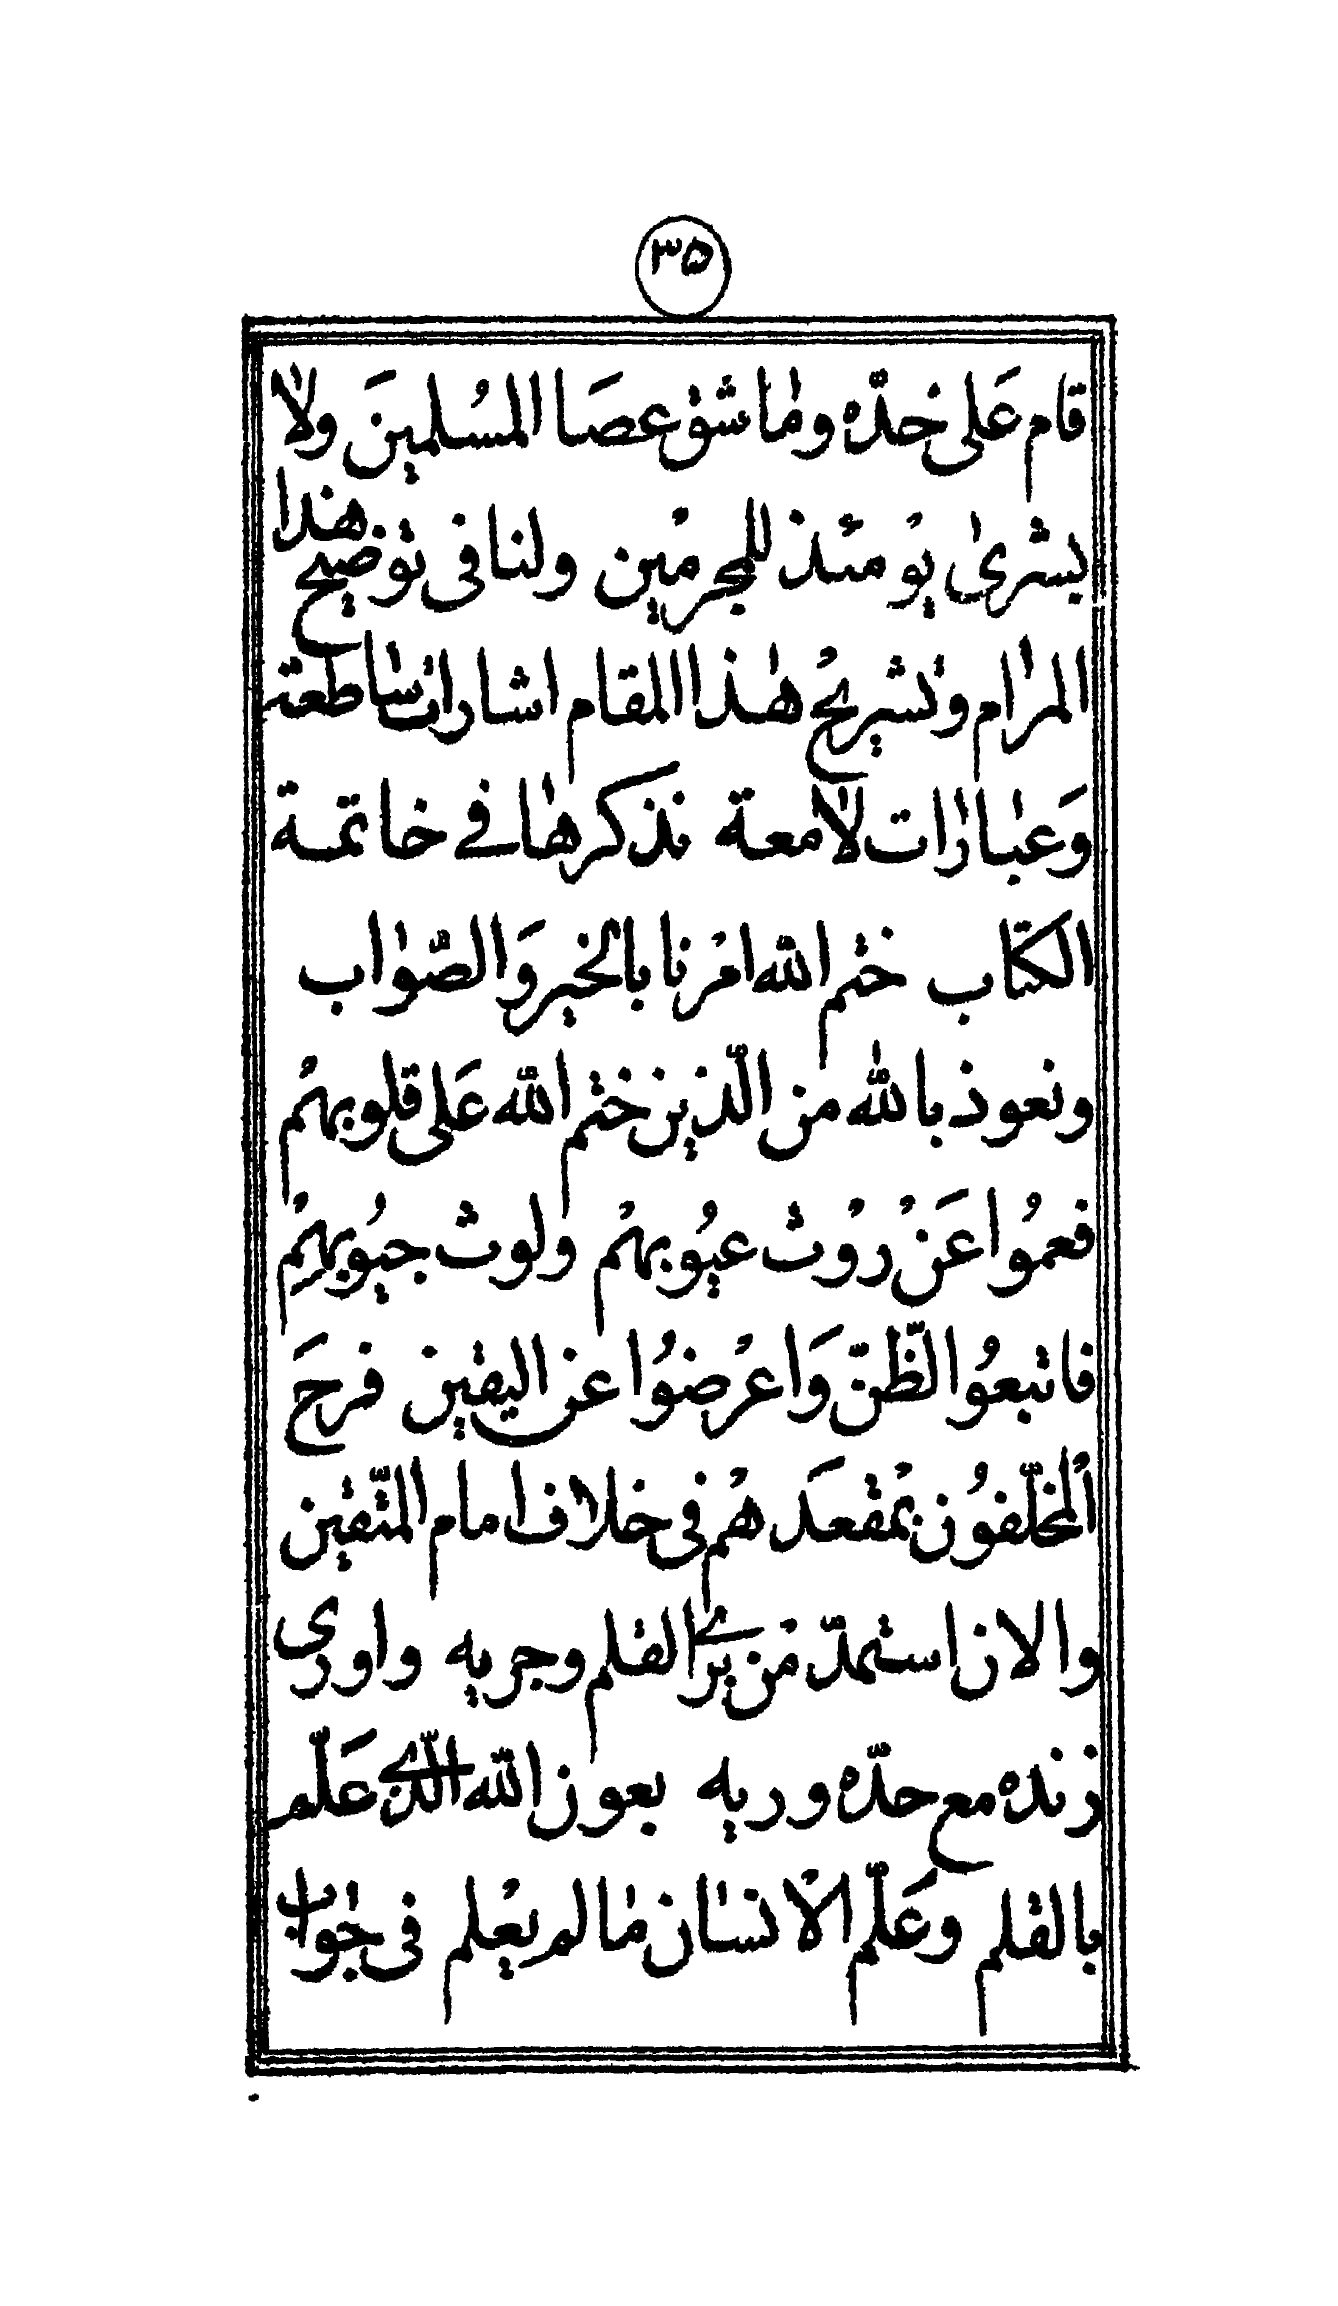 ۳۵
قام عَلى حدّه وما شق عصَا المسُلمينَ ولا
بشرىٰ يوْمئذ للمجرمْين ولنا فى توضيح هذا
المرام وتشريحْ هٰذا المقام اشارات ساطعة
وَعبارات لامعة نذكرها فے خاتمة
الكتاب ختم الله امْرنا بالخير وَالصّواب
ونعوذ بالله من الّذين ختم الله عَلى قلوبهمْ
فعموُا عَنْ روْث عيوُبهمْ ولوث جيوُبهمْ
فاتبعوُا الظّنّ وَاعْرضوُا عن اليقين فرحَ
اْلمخلّفوُن بمْقعدَهمْ فى خلاف امام المتّقين
والان استمدّ منْ برے القلم وجريه واورى
زنده مع حدّه وريه بعون الله الّذے عَلّم
بالقلم وعَلّم الاْنسان ما لم يعْلم فى جواب